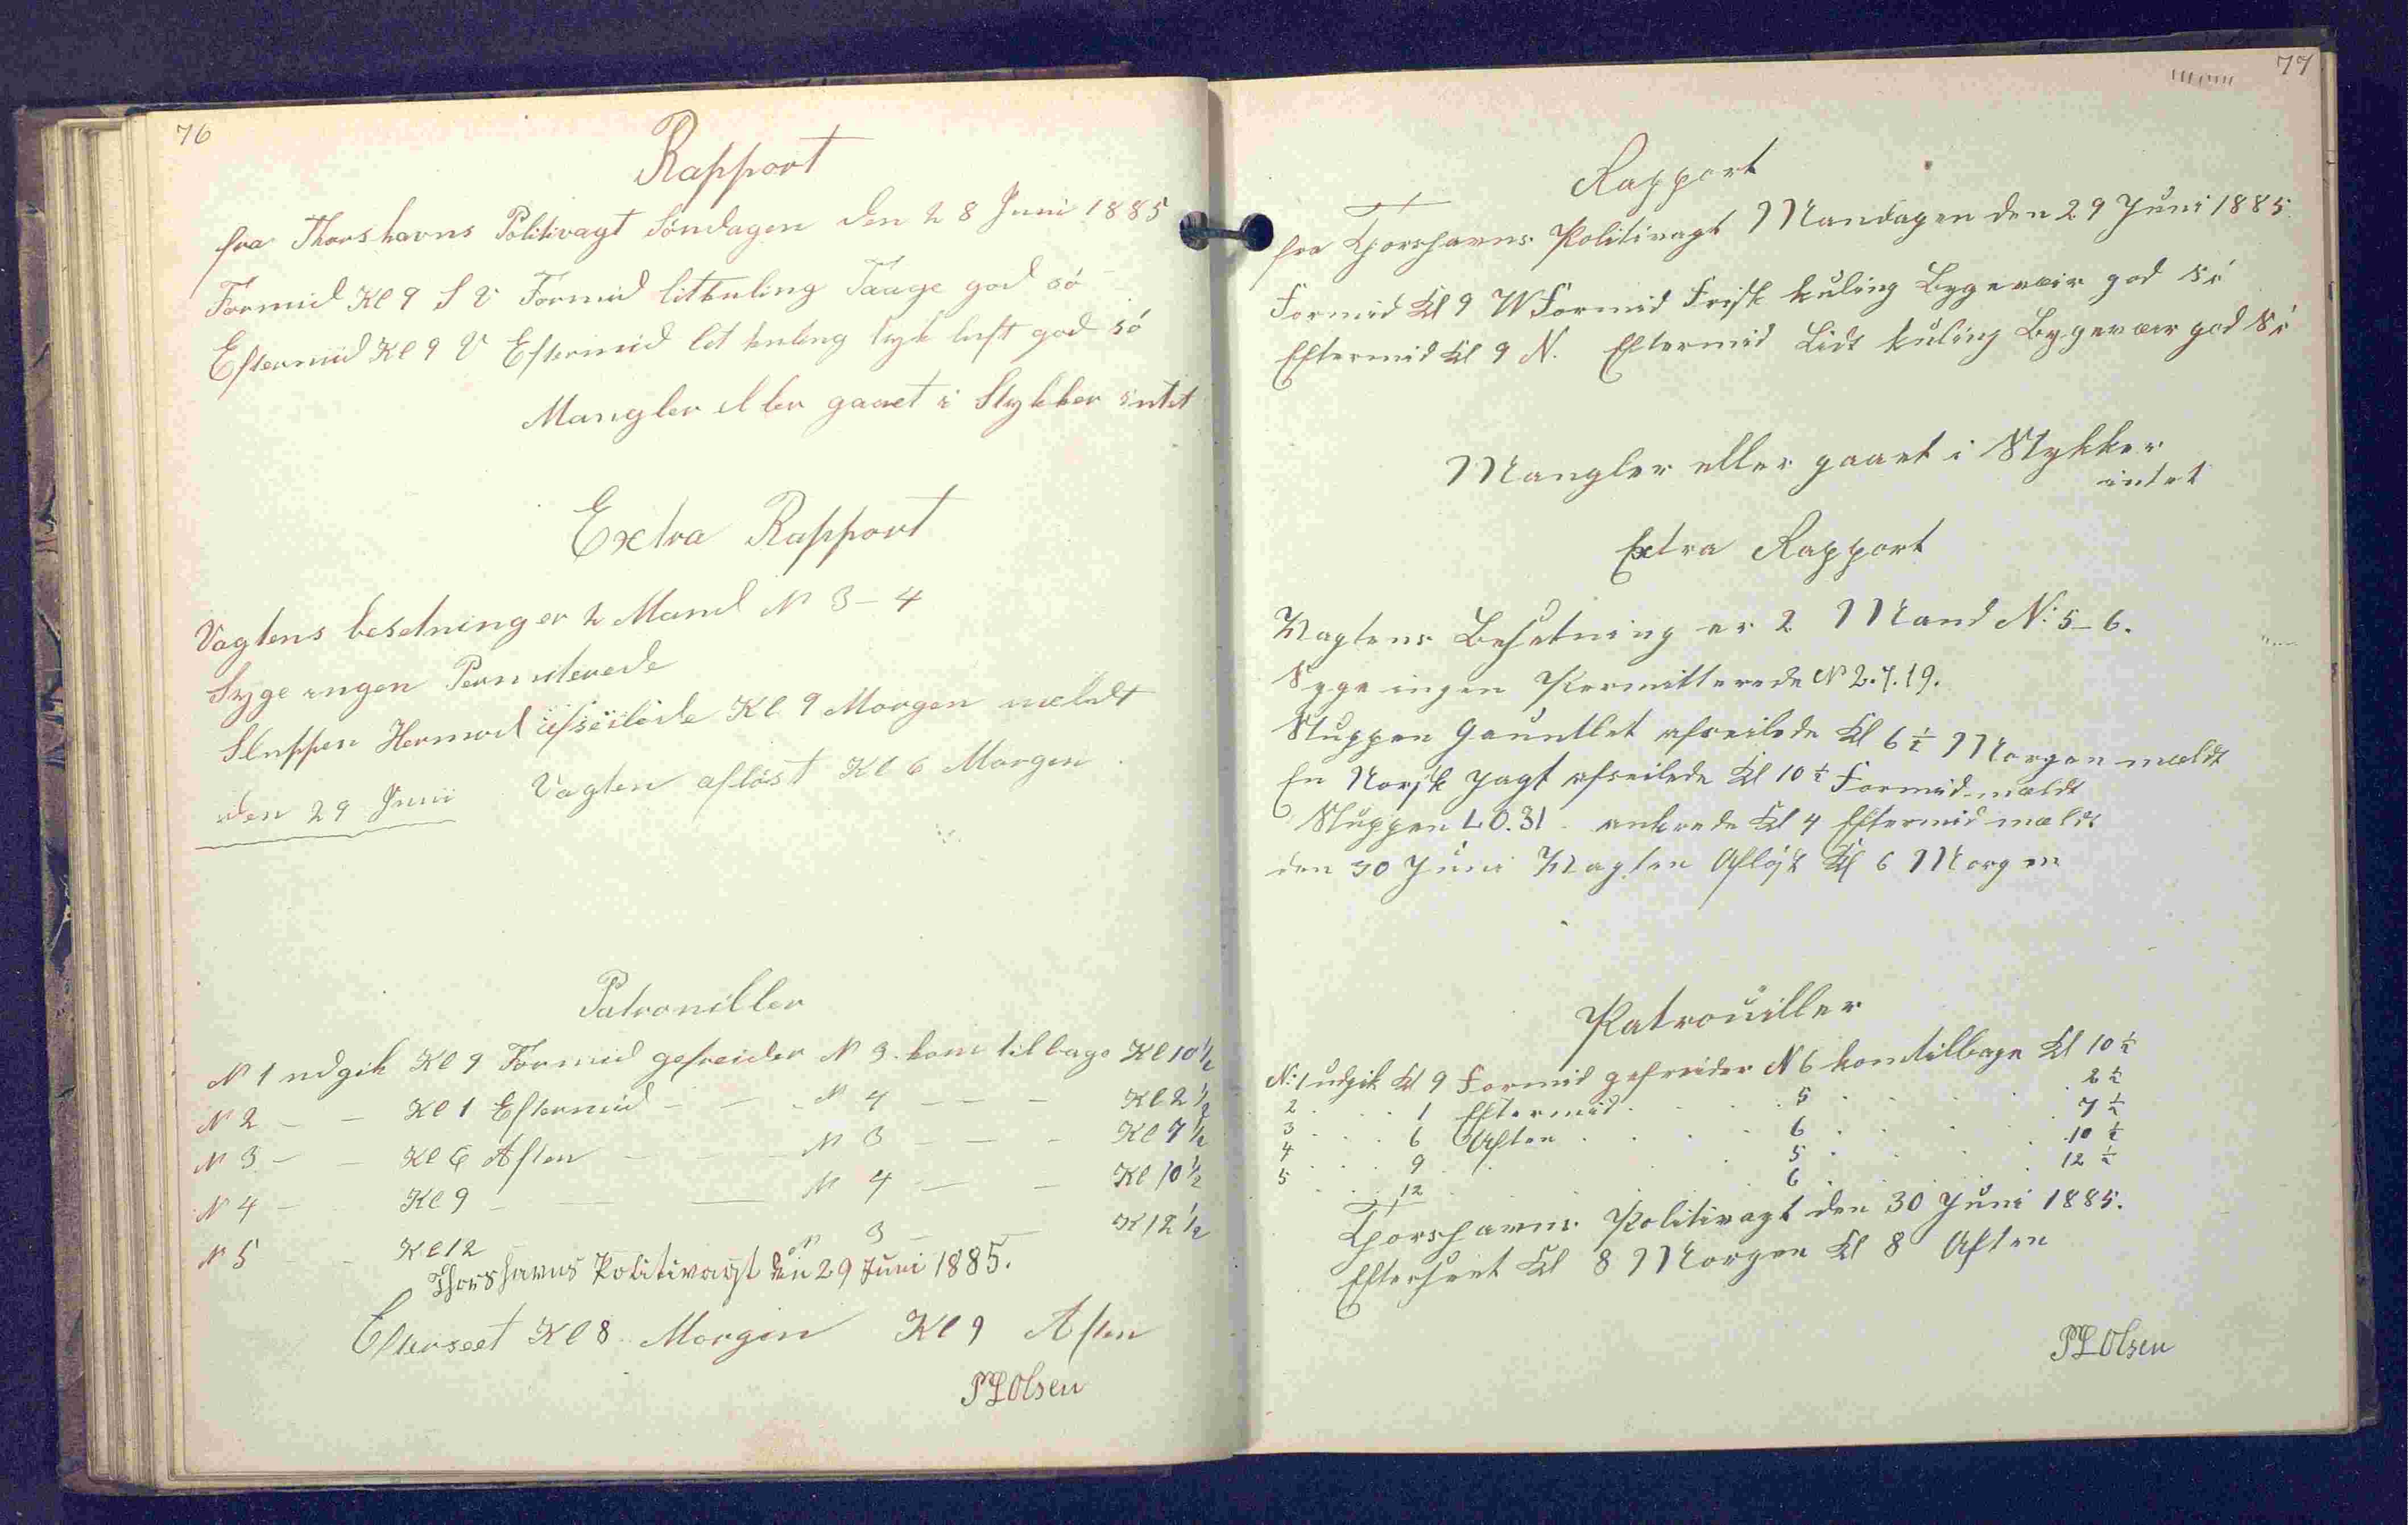 76
Rapport
fra Thorshavns Politivagt Søndagen den 28 Juni 1885
Formid Kl 9 S V Formid litkuling Taage god sö
Eftermid Kl 9 V Eftermid let kuling tyk luft god sö
Mangler eller gaaet i Stykker intet
Extra Rapport
Vagtens besetning er 2 Mand N 3-4
Syge ingen Permiterede
Sluppen Hermod afseilede Kl 9 Morgen mældt
den 29 Juni Vagten afløst Kl 6 Morgen
Patrouiller
N 1 udgik Kl 9 Formid gefreider N 3. kom tilbage Kl 10 1/2
N 2 — — Kl 1 Eftermid — — - N 4 — — — Kl 2 1/2
N 3 — — Kl 6 Aften — — — N 3 — — — Kl 7 1/2
N 4 — Kl 9 — — — N 4 — — Kl 10 1/2
N 5 — — Kl 12 — N 3 — — K 12 1/2
Thorshavns Politivagt den 29 Juni 1885.
Efterseet Kl 8 Morgen Kl 9 Aften
PLOlsen
77
Rapport
fra Thorshavns Politivagt Mandagen den 29 Juni 1885
Formid Kl 9 W Formid Frisk kuling Bygevær god Sö
Eftermid Kl 9 N. Eftermid Lidt kuling Bygevær god Sö
Mangler eller gaaet i Stykker
intet
Extra Rapport
Vagtens Besetning er 2 Mand N: 5-6.
Syge ingen Permitterede N 2.7.19.
Sluppen Gauntlet afseilede Kl 6 1/2 Morgen mældt
En Norsk Jagt afseilede Kl 10 1/2 Formid mældt
Sluppen L O. 31 ankrede Kl 4 Eftermid mældt
den 30 Juni Vagten Afløst Kl 6 Morgen
Patrouiller
N: 1 udgik Kl 9 Formid gefreider N 6 kom tilbage Kl 10 1/2
2 . . . 1 Eftermid . . . . 5 . . . . 2 1/2
3 . . . 6 Aften . . . . 6 . . . . 7 1/2
4 . . . 9 . . . . 5 . . . . 10 1/2
5 . . . 12 . . . . 6 . . . . 12 1/2
Thorshavns Politivagt den 30 Juni 1885.
Efterseet Kl 8 Morgen Kl 8 Aften
PLOlsen